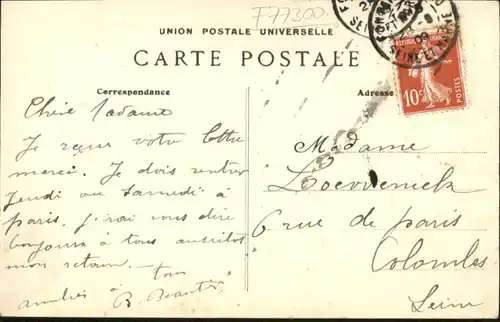 F77300
UNION POSTALE UNIVERSELLE
CARTE POSTALE
Correspondance
Adresse
SEINE ET MARNE
10c
POSTES
Chère Madame
Je reçois votre lettre
merci. Je dois rentrer
Jeudi ou Samedi à
paris. J'irai vous dire
bonjour à tous aussitôt
mon retour.
amitiés à tous
Madame
6 rue de paris
Colombes
Seine